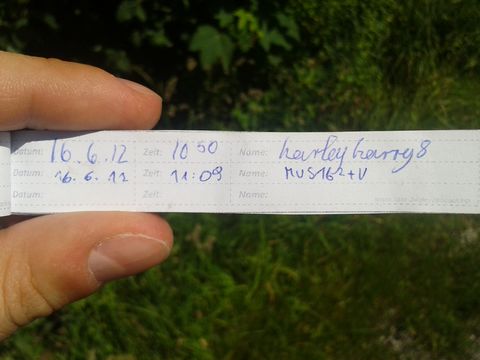 Datum: 16.6.12 Zeit: 10 50 Name: harleyharry8
Datum: 16.6.12 Zeit: 11:09 Name:
Datum: Zeit: Name: